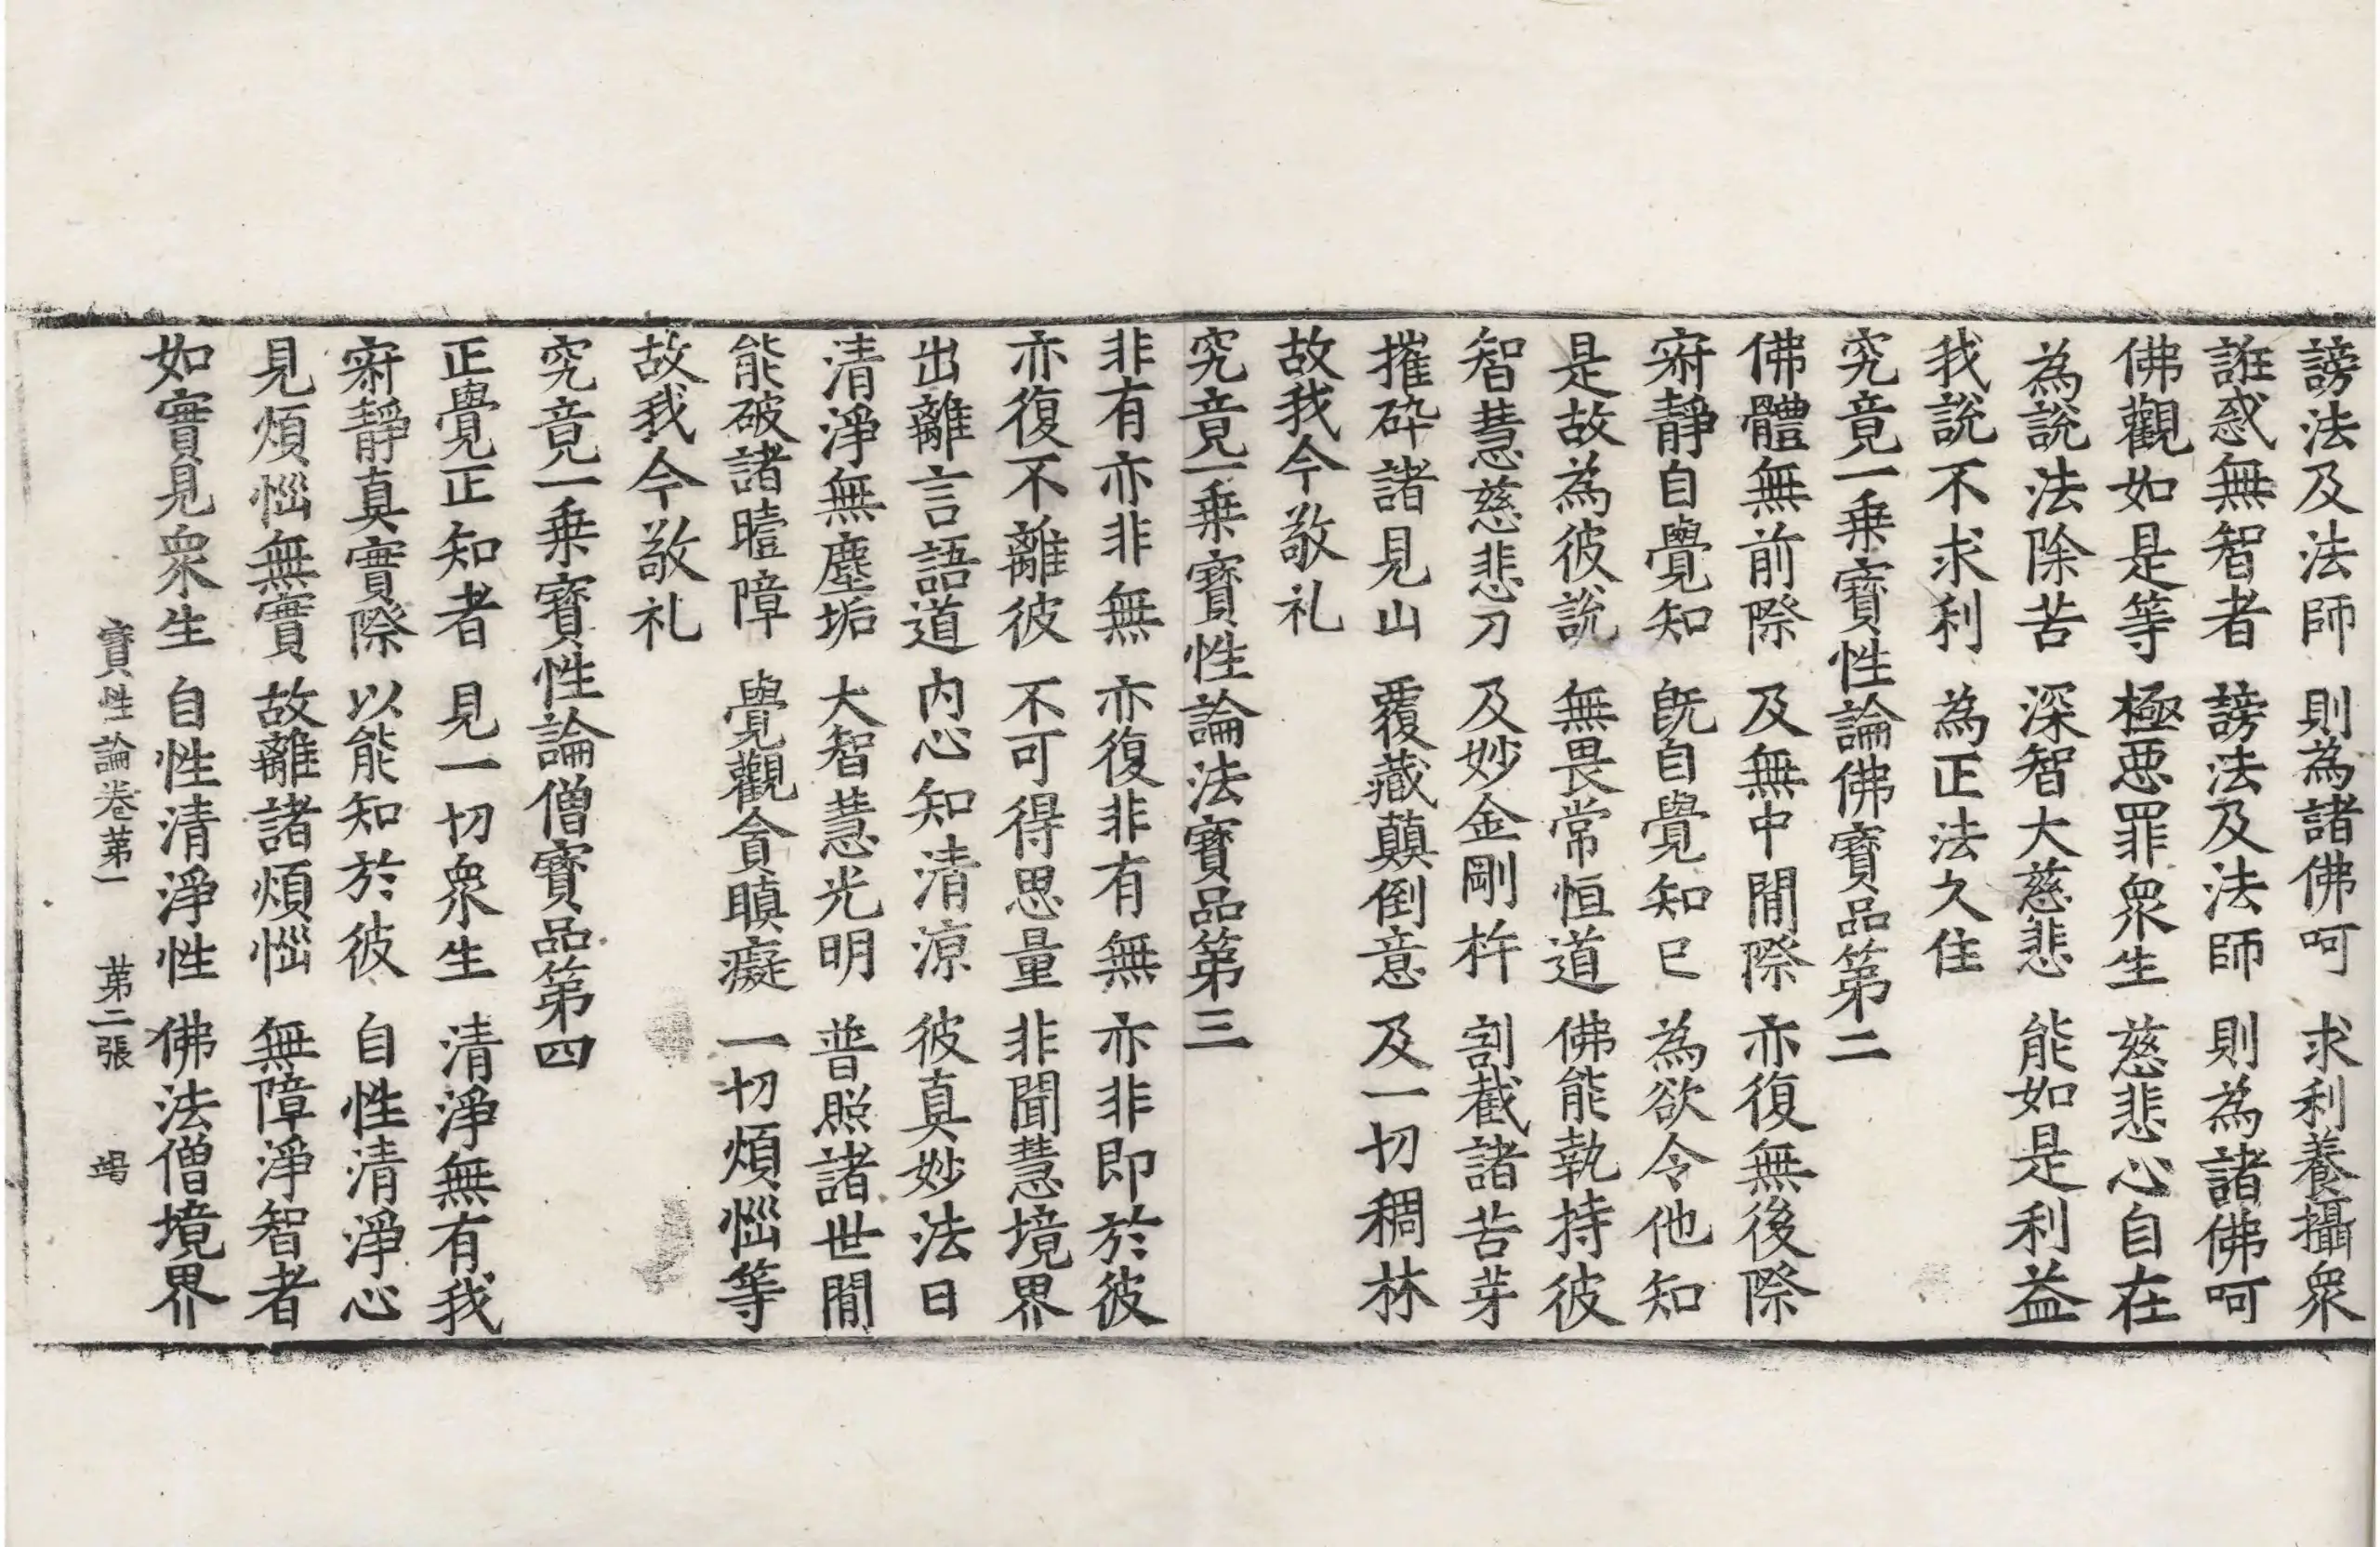 謗法及法師　則為諸佛呵　求利養攝衆
誑惑無智者　謗法及法師　則為諸佛呵
佛觀如是等　極悪罪衆生　慈悲心自在
為說法除苦　深智大慈悲　能如是利益
我說不求利　為正法久住
究竟一乗寶性論佛寶品第二
佛體無前際　及無中閒際　亦復無後際
寂靜自覺知　旣自覺知已　為欲令他知
是故為彼說　無畏常恒道　佛能執持彼
智慧慈悲刀　及妙金剛杵　割截諸苦芽
摧碎諸見山　覆藏顚倒意　及一切稠林
故我今敬礼
究竟一乗寶性論法寶品第三
非有亦非無　亦復非有無　亦非即於彼
亦復不離彼　不可得思量　非聞慧境界
出離言語道　内心知清涼　彼真妙法日
清淨無塵垢　大智慧光明　普照諸世閒
能破諸曀障　覺觀貪瞋癡　一切煩惱等
故我今敬礼
究竟一乗寶性論僧寶品第四
正覺正知者　見一切衆生　清淨無有我
寂靜真實際　以能知於彼　自性清淨心
見煩惱無實　故離諸煩惱　無障淨智者
如實見衆生　自性清淨性　佛法僧境界
寶性論卷第一　第二張　竭